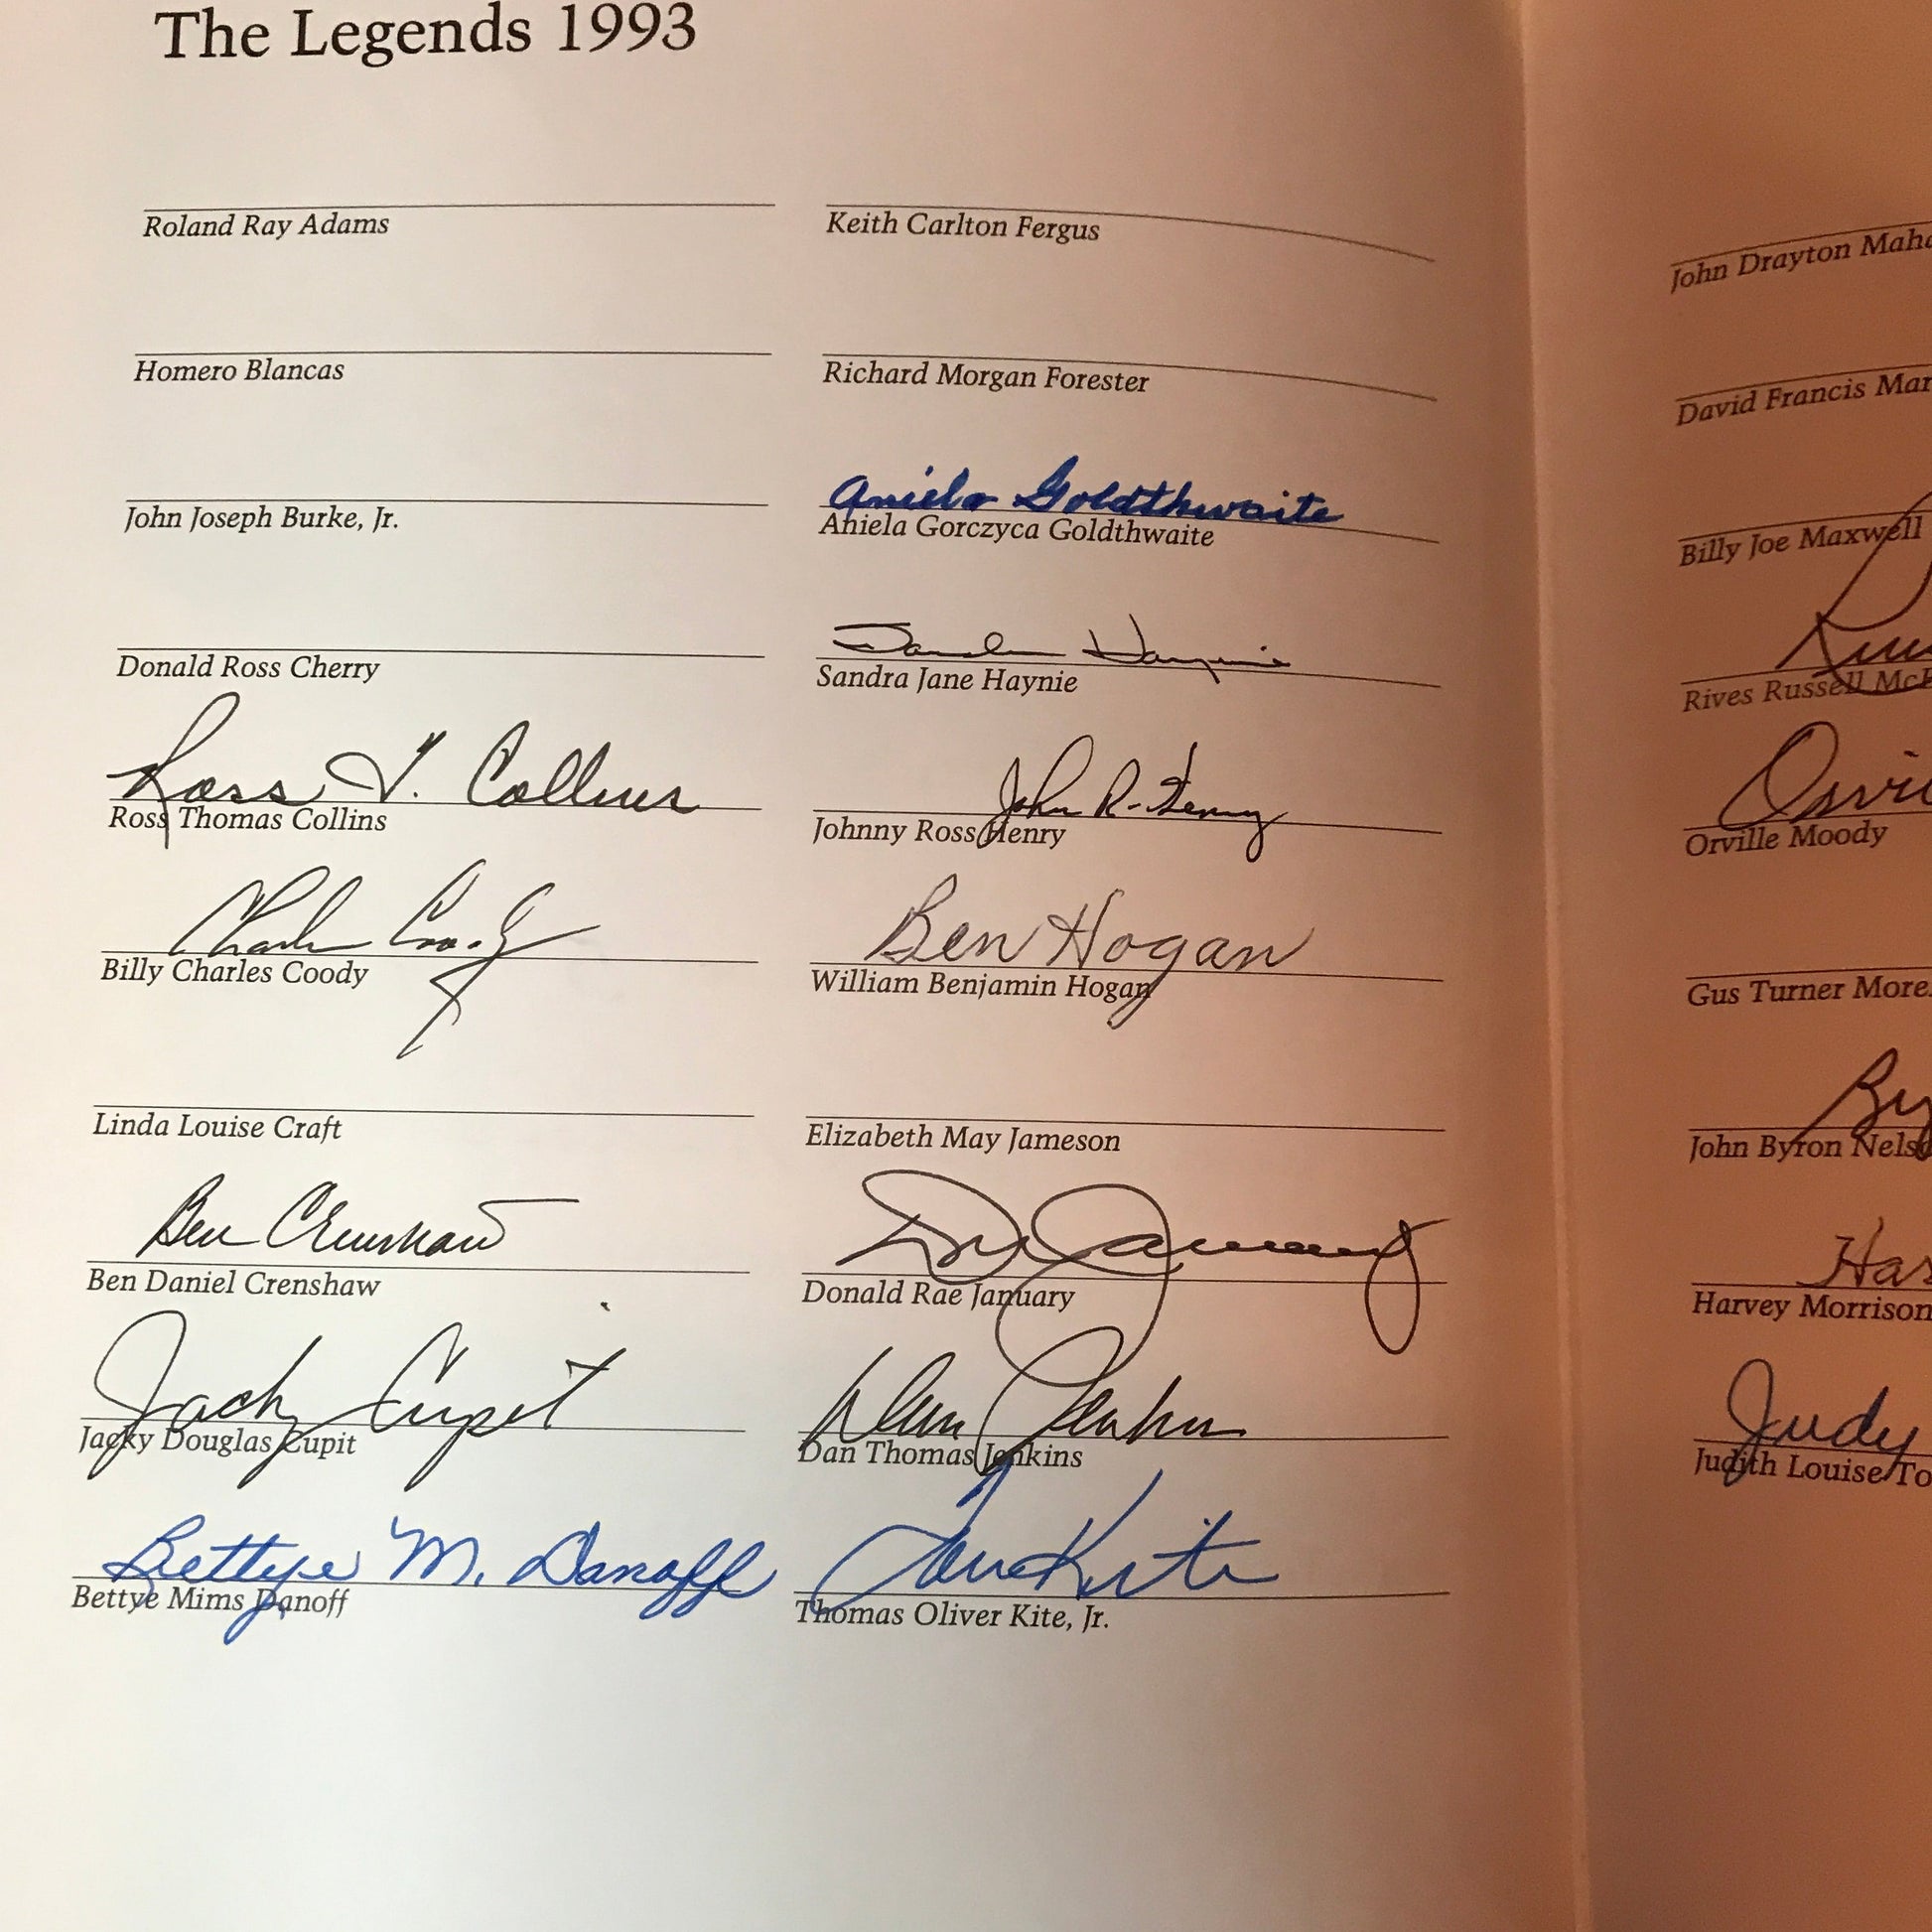 The Legends 1993
Roland Ray Adams
Homero Blancas
John Joseph Burke, Jr.
Donald Ross Cherry
Ross T. Collins
Ross Thomas Collins
Charles Coody
Billy Charles Coody
Linda Louise Craft
Ben Crenshaw
Ben Daniel Crenshaw
Jacky Cupit
Jacky Douglas Cupit
Bettye M. Danoff
Bettye Mims Danoff
Keith Carlton Fergus
Richard Morgan Forester
Aniela Goldthwaite
Aniela Gorczyca Goldthwaite
Sandra Haynie
Sandra Jane Haynie
John R. Henry
Johnny Ross Henry
Ben Hogan
William Benjamin Hogan
Elizabeth May Jameson
Don January
Donald Rae January
Dan Jenkins
Dan Thomas Jenkins
Tom Kite
Thomas Oliver Kite, Jr.
John Drayton
David Francis
Billy Joe Maxwell
Rives Russell
Orville Moody
Gus Turner
By
John Byron
Harvey Morrison
Judy
Judith Louise